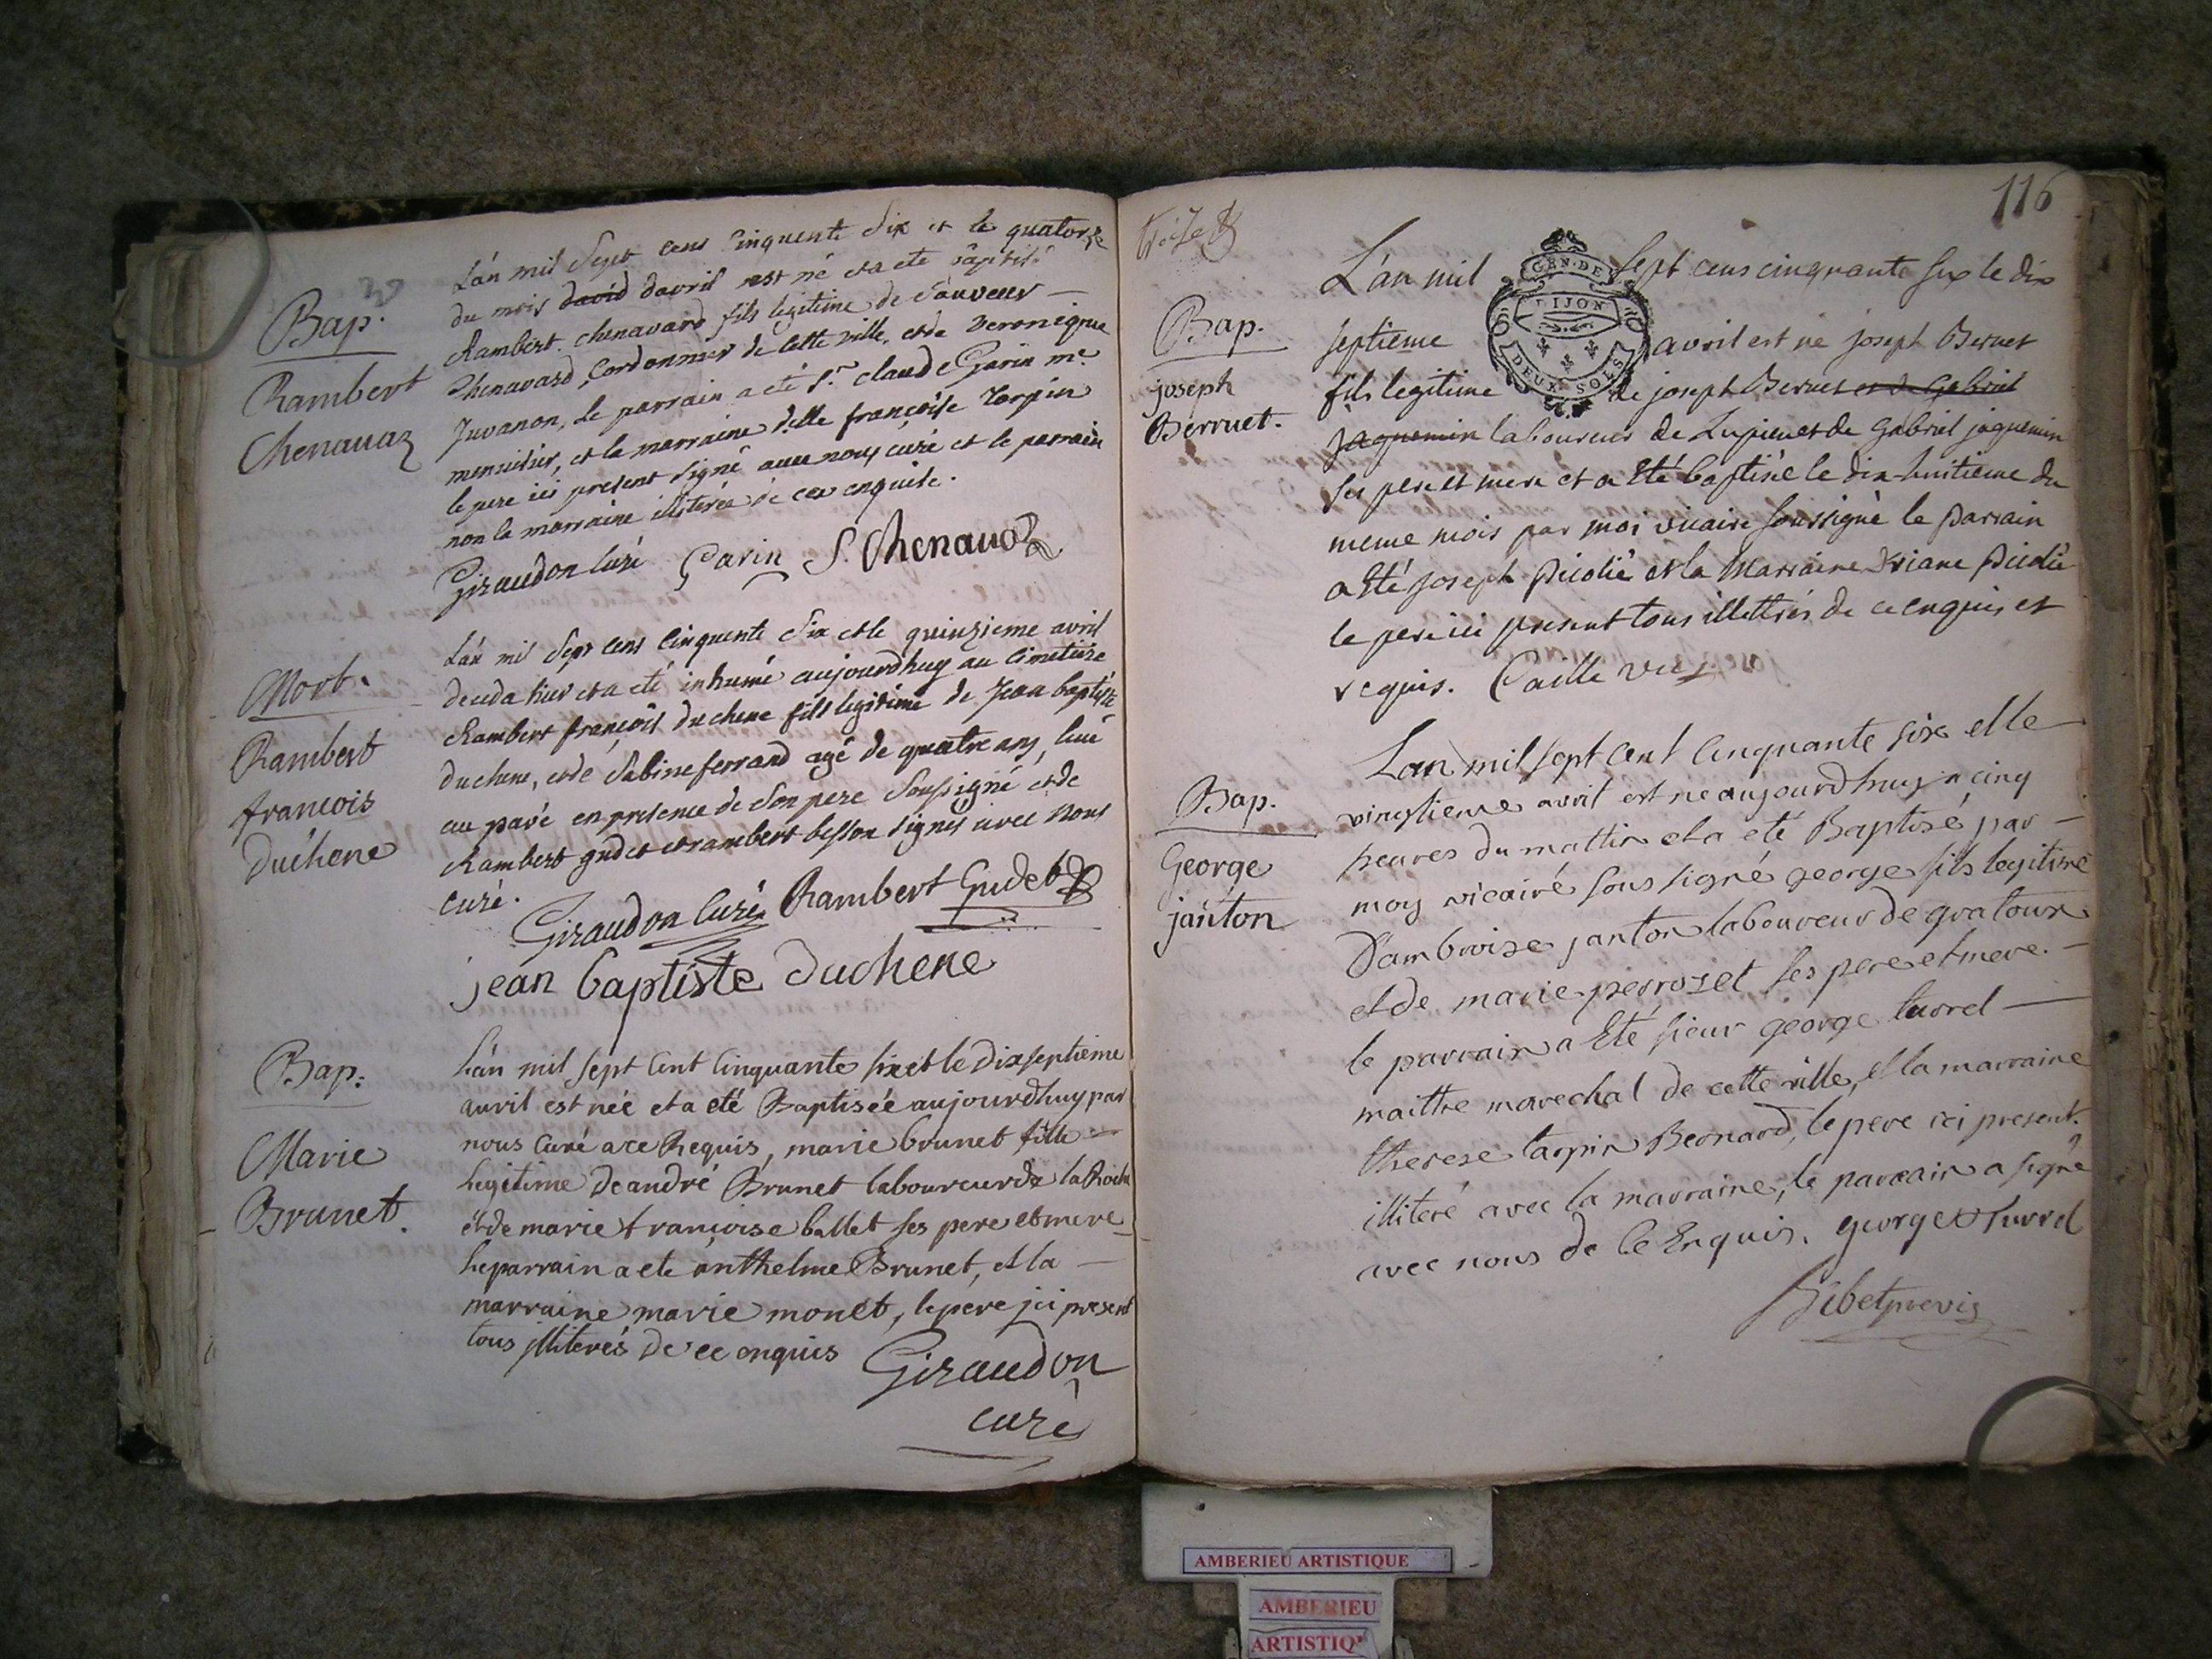 Bap.
Rambert
Chenavaz
L'an mil sept cens cinquente six et le quatorze
du mois david davril est né et a eté baptisé
Rambert chenavard fils legitime de Sauveur
Chenavard, Cordonnier de cette ville, et de veronique
Juvanon, le parrain a eté Sr. claude Garin me.
menuisier, et la marraine delle françoise Tarpin
le pere ici present signé avec nous curé et le parrain
non la marraine illiterée de ce enquise.
Giraudon curé Garin S. Chenavaz
Mort.
Rambert
francois
Duchene
L'an mil sept cens cinquente six et le quinzieme avril
deceda hier et a eté inhumé aujourdhuy au cimetiere
Rambert françois duchene fils legitime de Jean baptiste
duchene, et de Sabine ferrand agé de quatre ans,
au pavé en presence de son pere soussigné et de
Rambert gudet et rambert besson signés avec nous
curé.
Giraudon curé Rambert Gudet
jean baptiste duchene
Bap.
Marie
Brunet.
L'an mil sept cent cinquante six et le dix septieme
avril est née et a eté Baptisée aujourdhuy par
nous curé a ce Requis, marie brunet fille
legitime de andré Brunet laboureur de la Roche
et de marie francoise ballet ses pere et mere
le parrain a ete anthelme Brunet, et la
marraine marie monet, le pere ici present
tous illiterés de ce enquis
Giraudon
curé
116
Bap.
joseph
Berruet.
L'an mil sept cens cinquante six le dix
GEN. DE
DIJON
DEUX SOLS
septieme avril est né joseph Bernet
fils legitime de joseph Bernet et de Gabriel
jaquemin laboureur de Lupieu et de Gabriel jaquemin
ses pere et mere et a Eté baptisé le dix-huitieme du
meme mois par moi vicaire soussigné le parrain
a Eté joseph Picolié et la Marraine Picolié
le pere ici present tous illettrés de ce enquis et
requis. Caille vic
Bap.
George
janton
L'an mil sept cent cinquante six et le
vingtieme avril est ne aujourdhuy a cinq
heures du mattin et a eté Baptisé par
moy vicaire sous signé george fils legitime
D'ambroise janton laboureur de gratoux
et de marie perrozet ses pere et mere.
le parrain a Eté sieur george turrel
maittre marechal de cette ville, et la marraine
therese tarpin Bernard, le pere ici present
illiteré avec la marraine, le parrain a signé
avec nous de ce Enquis. george Turrel
AMBERIEU ARTISTIQUE
AMBERIEU
ARTISTIQ